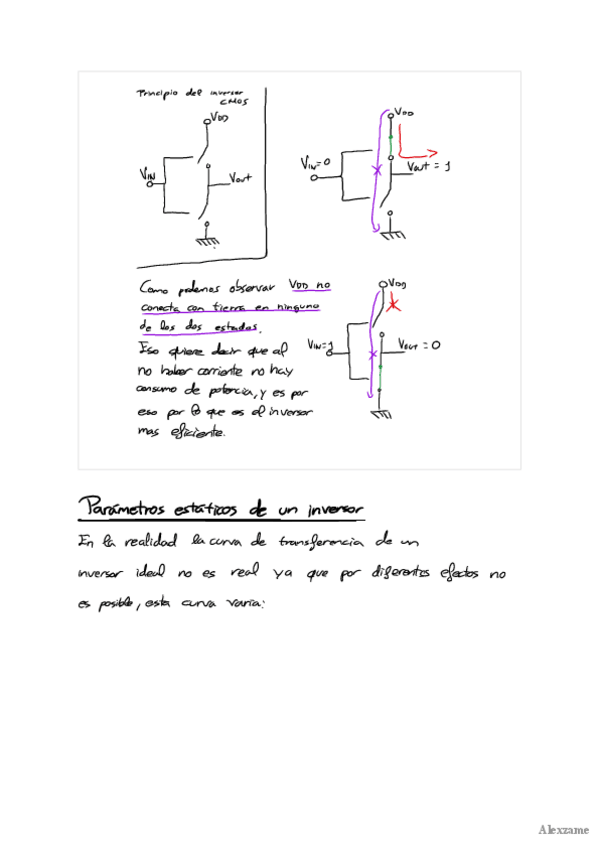 Principio del inversor
CMOS
VDD
VIN
Vout
VDD
VIN=0
Vout = 1
Como podemos observar VDD no
conecta con tierra en ninguno
de los dos estados.
Eso quiere decir que al
no haber corriente no hay
consumo de potencia, y es por
eso por lo que es el inversor
mas eficiente.
VDD
VIN=1
Vout = 0
Parámetros estáticos de un inversor
En la realidad la curva de transferencia de un
inversor ideal no es real ya que por diferentes efectos no
es posible, esta curva varia:
Alexzame